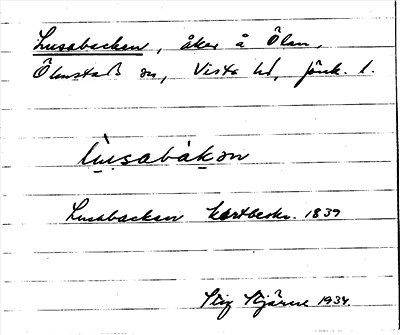 Lusabacken, åker å Ölan,
Ölmstad sn, Vista hd, Jönk. l.
lu̱sabàkən
Lusabacken kartbeskr. 1839
Stig Stjärne 1934